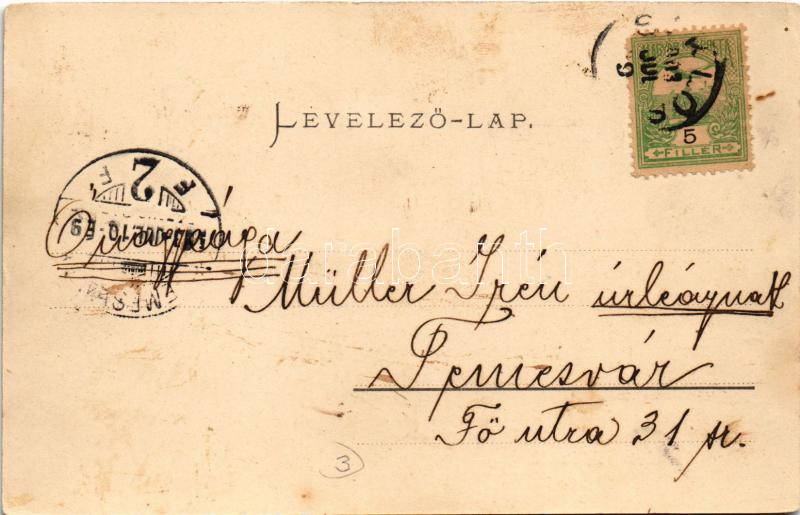 LEVELEZŐ-LAP.
5
FILLÉR
JUL
9
2
Őnagysága
Müller Irén úrleánynak
Temesvár
Fő utca 31 sz.
3
darabanth